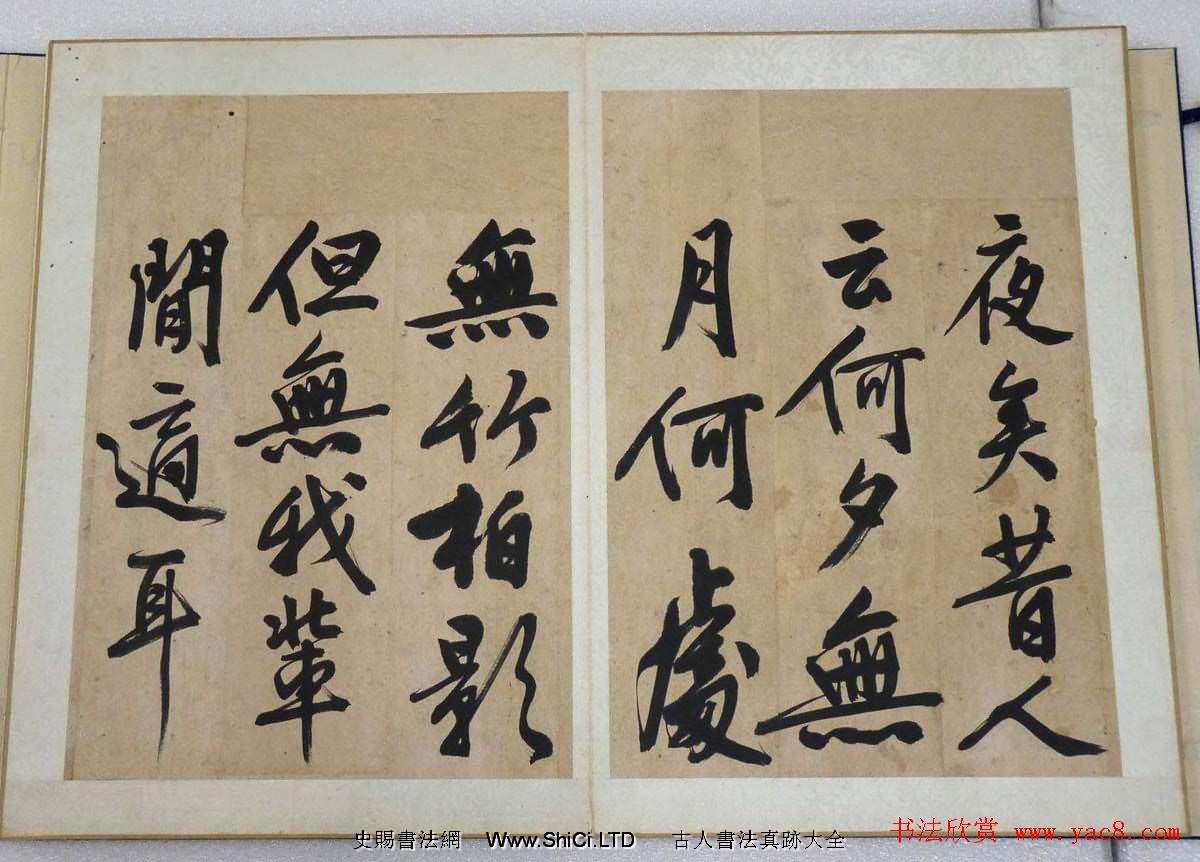 夜矣昔人
云何夕無
月何處
無竹柏影
但無我輩
閒適耳
史賜書法網 Www.ShiCi.LTD 古人書法真跡大全
书法欣赏 www.yac8.com